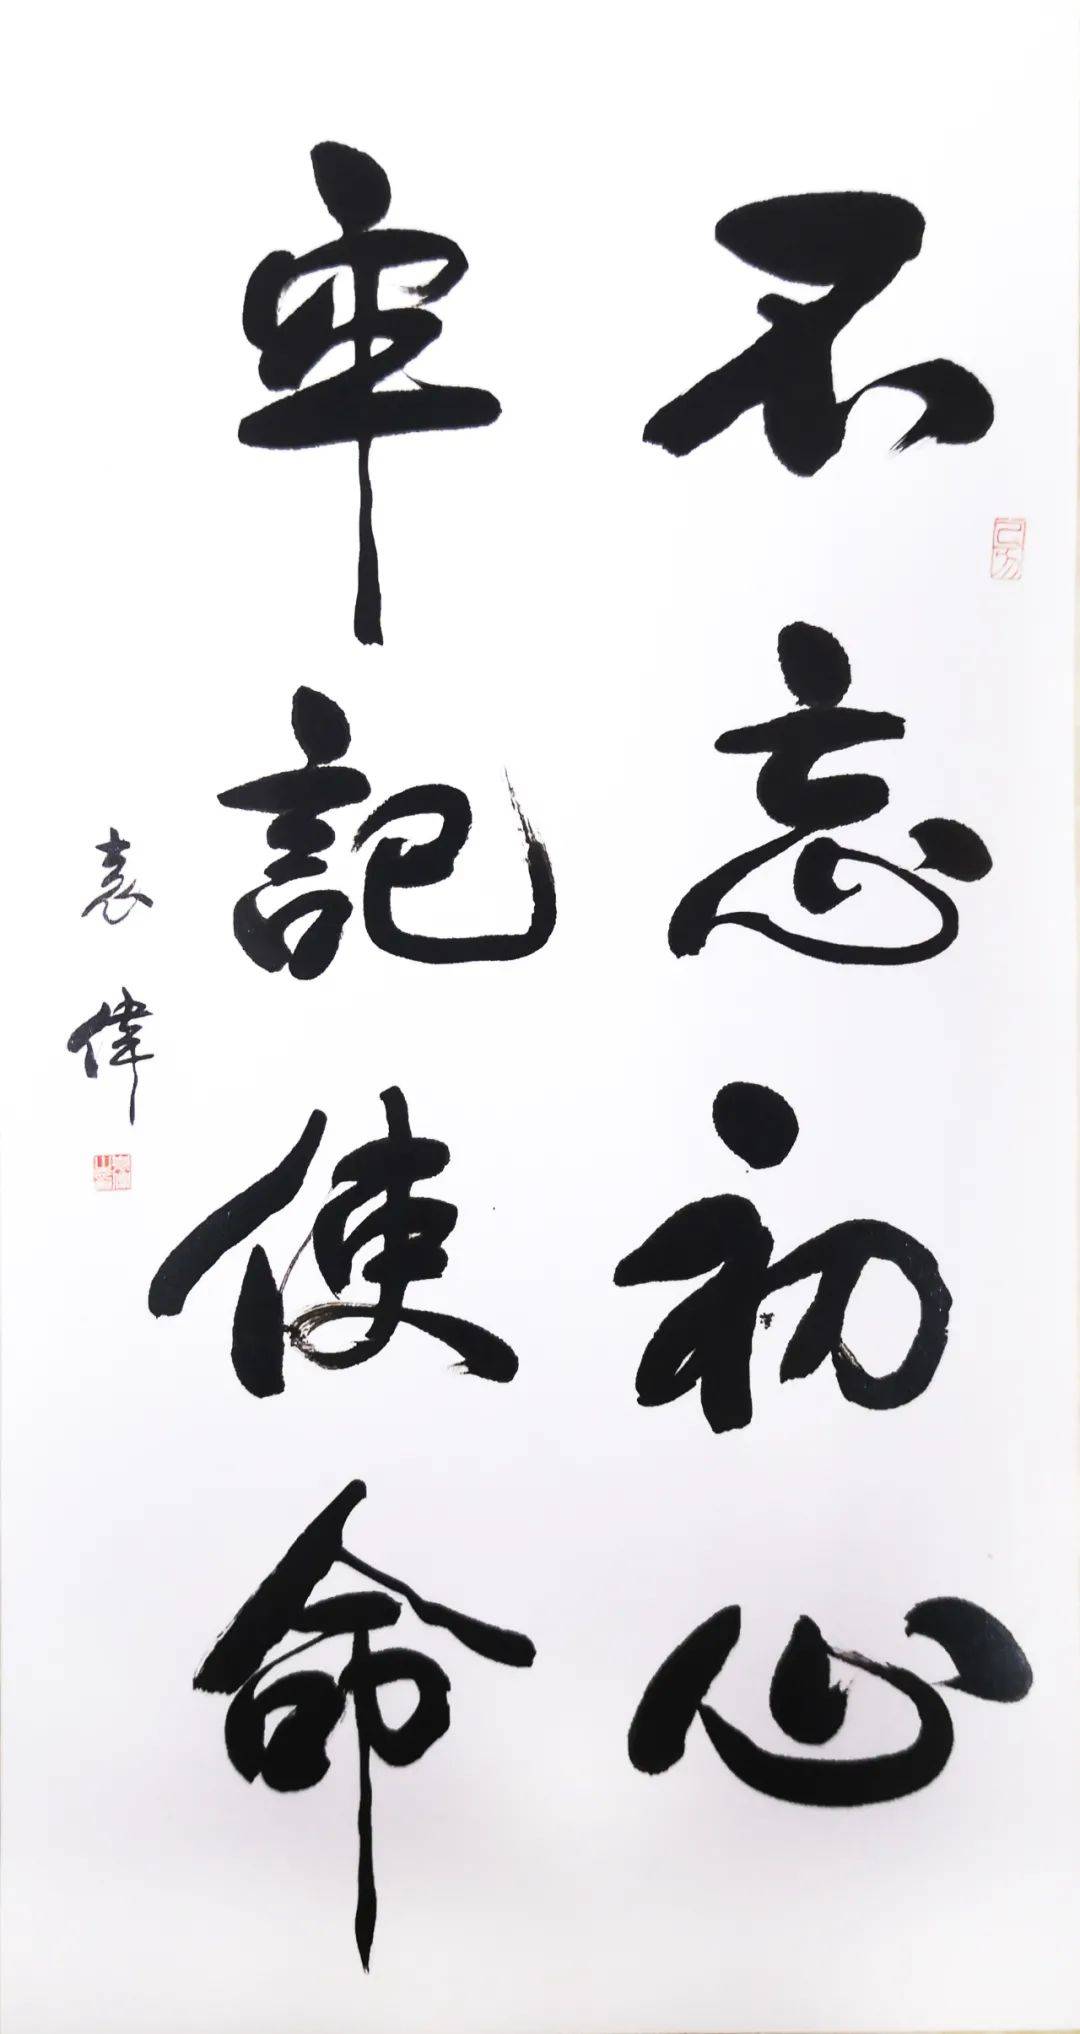 不忘初心
牢記使命
袁偉